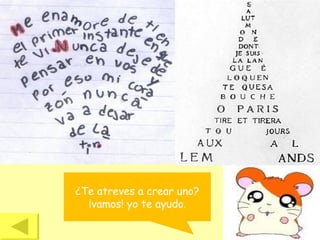 Me enamore de ti en
el primer instante en que
te vi. Nunca deje de
pensar en vos y
por eso mi cora
zón nunca
va a dejar
de la
tir
S
A
LUT
M
O N
D E
DONT
JE SUIS
LA LAN
GUE É
LOQUEN
TE QUESA
BOUCHE
O PARIS
TIRE ET TIRERA
TOU JOURS
AUX A L
LEM ANDS
¿Te atreves a crear uno?
¡vamos! yo te ayudo.